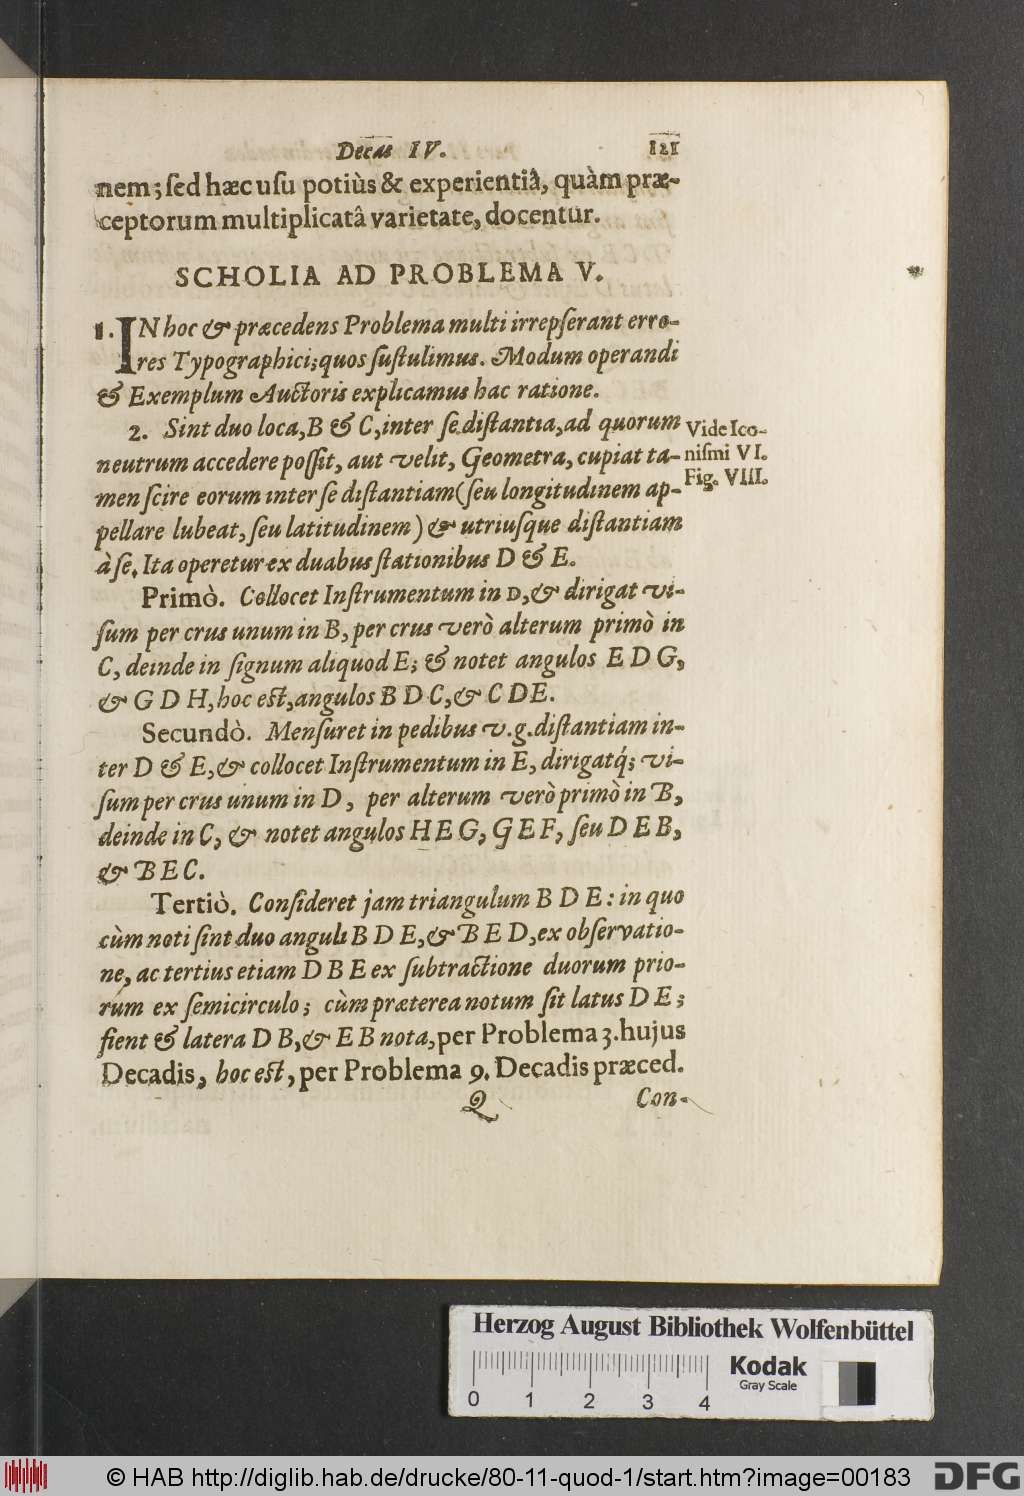 Decas IV. 121
nem; ſed hæc uſu potiùs & experientiâ, quàm præ-
ceptorum multiplicatâ varietate, docentur.
SCHOLIA AD PROBLEMA V.
1. IN hoc & præcedens Problema multi irrepſerant erro-
res Typographici; quos ſuſtulimus. Modum operandi
& Exemplum Auctoris explicamus hac ratione.
2. Sint duo loca, B & C, inter ſe diſtantia, ad quorum
neutrum accedere poſſit, aut velit, Geometra, cupiat ta-
men ſcire eorum inter ſe diſtantiam (ſeu longitudinem ap-
pellare lubeat, ſeu latitudinem) & utriuſque diſtantiam
à ſe. Ita operetur ex duabus ſtationibus D & E.
Vide Ico-
niſmi VI.
Fig. VIII.
Primò. Collocet Inſtrumentum in D, & dirigat vi-
ſum per crus unum in B, per crus verò alterum primò in
C, deinde in ſignum aliquod E; & notet angulos E D G,
& G D H, hoc eſt, angulos B D C, & C D E.
Secundò. Menſuret in pedibus v. g. diſtantiam in-
ter D & E, & collocet Inſtrumentum in E, dirigatq́; vi-
ſum per crus unum in D, per alterum verò primò in B,
deinde in C, & notet angulos H E G, G E F, ſeu D E B,
& B E C.
Tertiò. Conſideret jam triangulum B D E: in quo
cùm noti ſint duo anguli B D E, & B E D, ex obſervatio-
ne, ac tertius etiam D B E ex ſubtractione duorum prio-
rum ex ſemicirculo; cùm præterea notum ſit latus D E;
fient & latera D B, & E B nota, per Problema 3. hujus
Decadis, hoc eſt, per Problema 9. Decadis præced.
Q Con-
Herzog August Bibliothek Wolfenbüttel
Kodak
Gray Scale
0 1 2 3 4
© HAB http://diglib.hab.de/drucke/80-11-quod-1/start.htm?image=00183
DFG